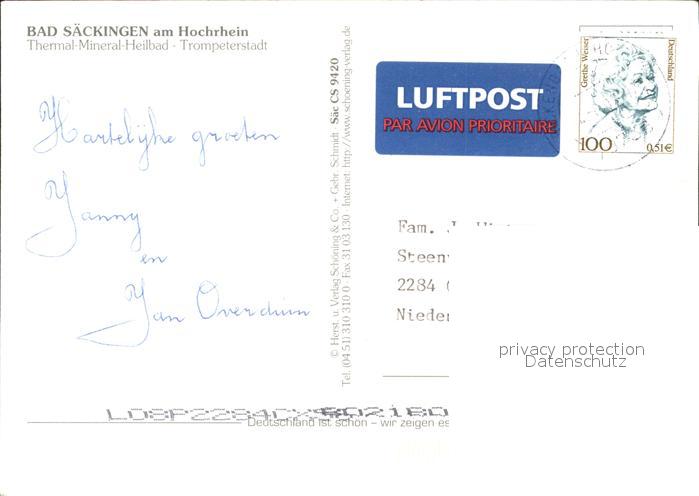 BAD SÄCKINGEN am Hochrhein
Thermal-Mineral-Heilbad - Trompeterstadt
Hartelijke groeten
Janny
en
Jan Overduin
© Herst. u. Verlag Schöning & Co. + Gebr. Schmidt · Säc CS 9420
Tel. (04 51) 310 310 0 · Fax 31 03 130 · Internet: http://www.schoening-verlag.de
LUFTPOST
PAR AVION PRIORITAIRE
Grethe Weiser
Deutschland
100
0,51€
Fam. J.
Steen
2284
Nieder
privacy protection
Datenschutz
Deutschland ist schön – wir zeigen es